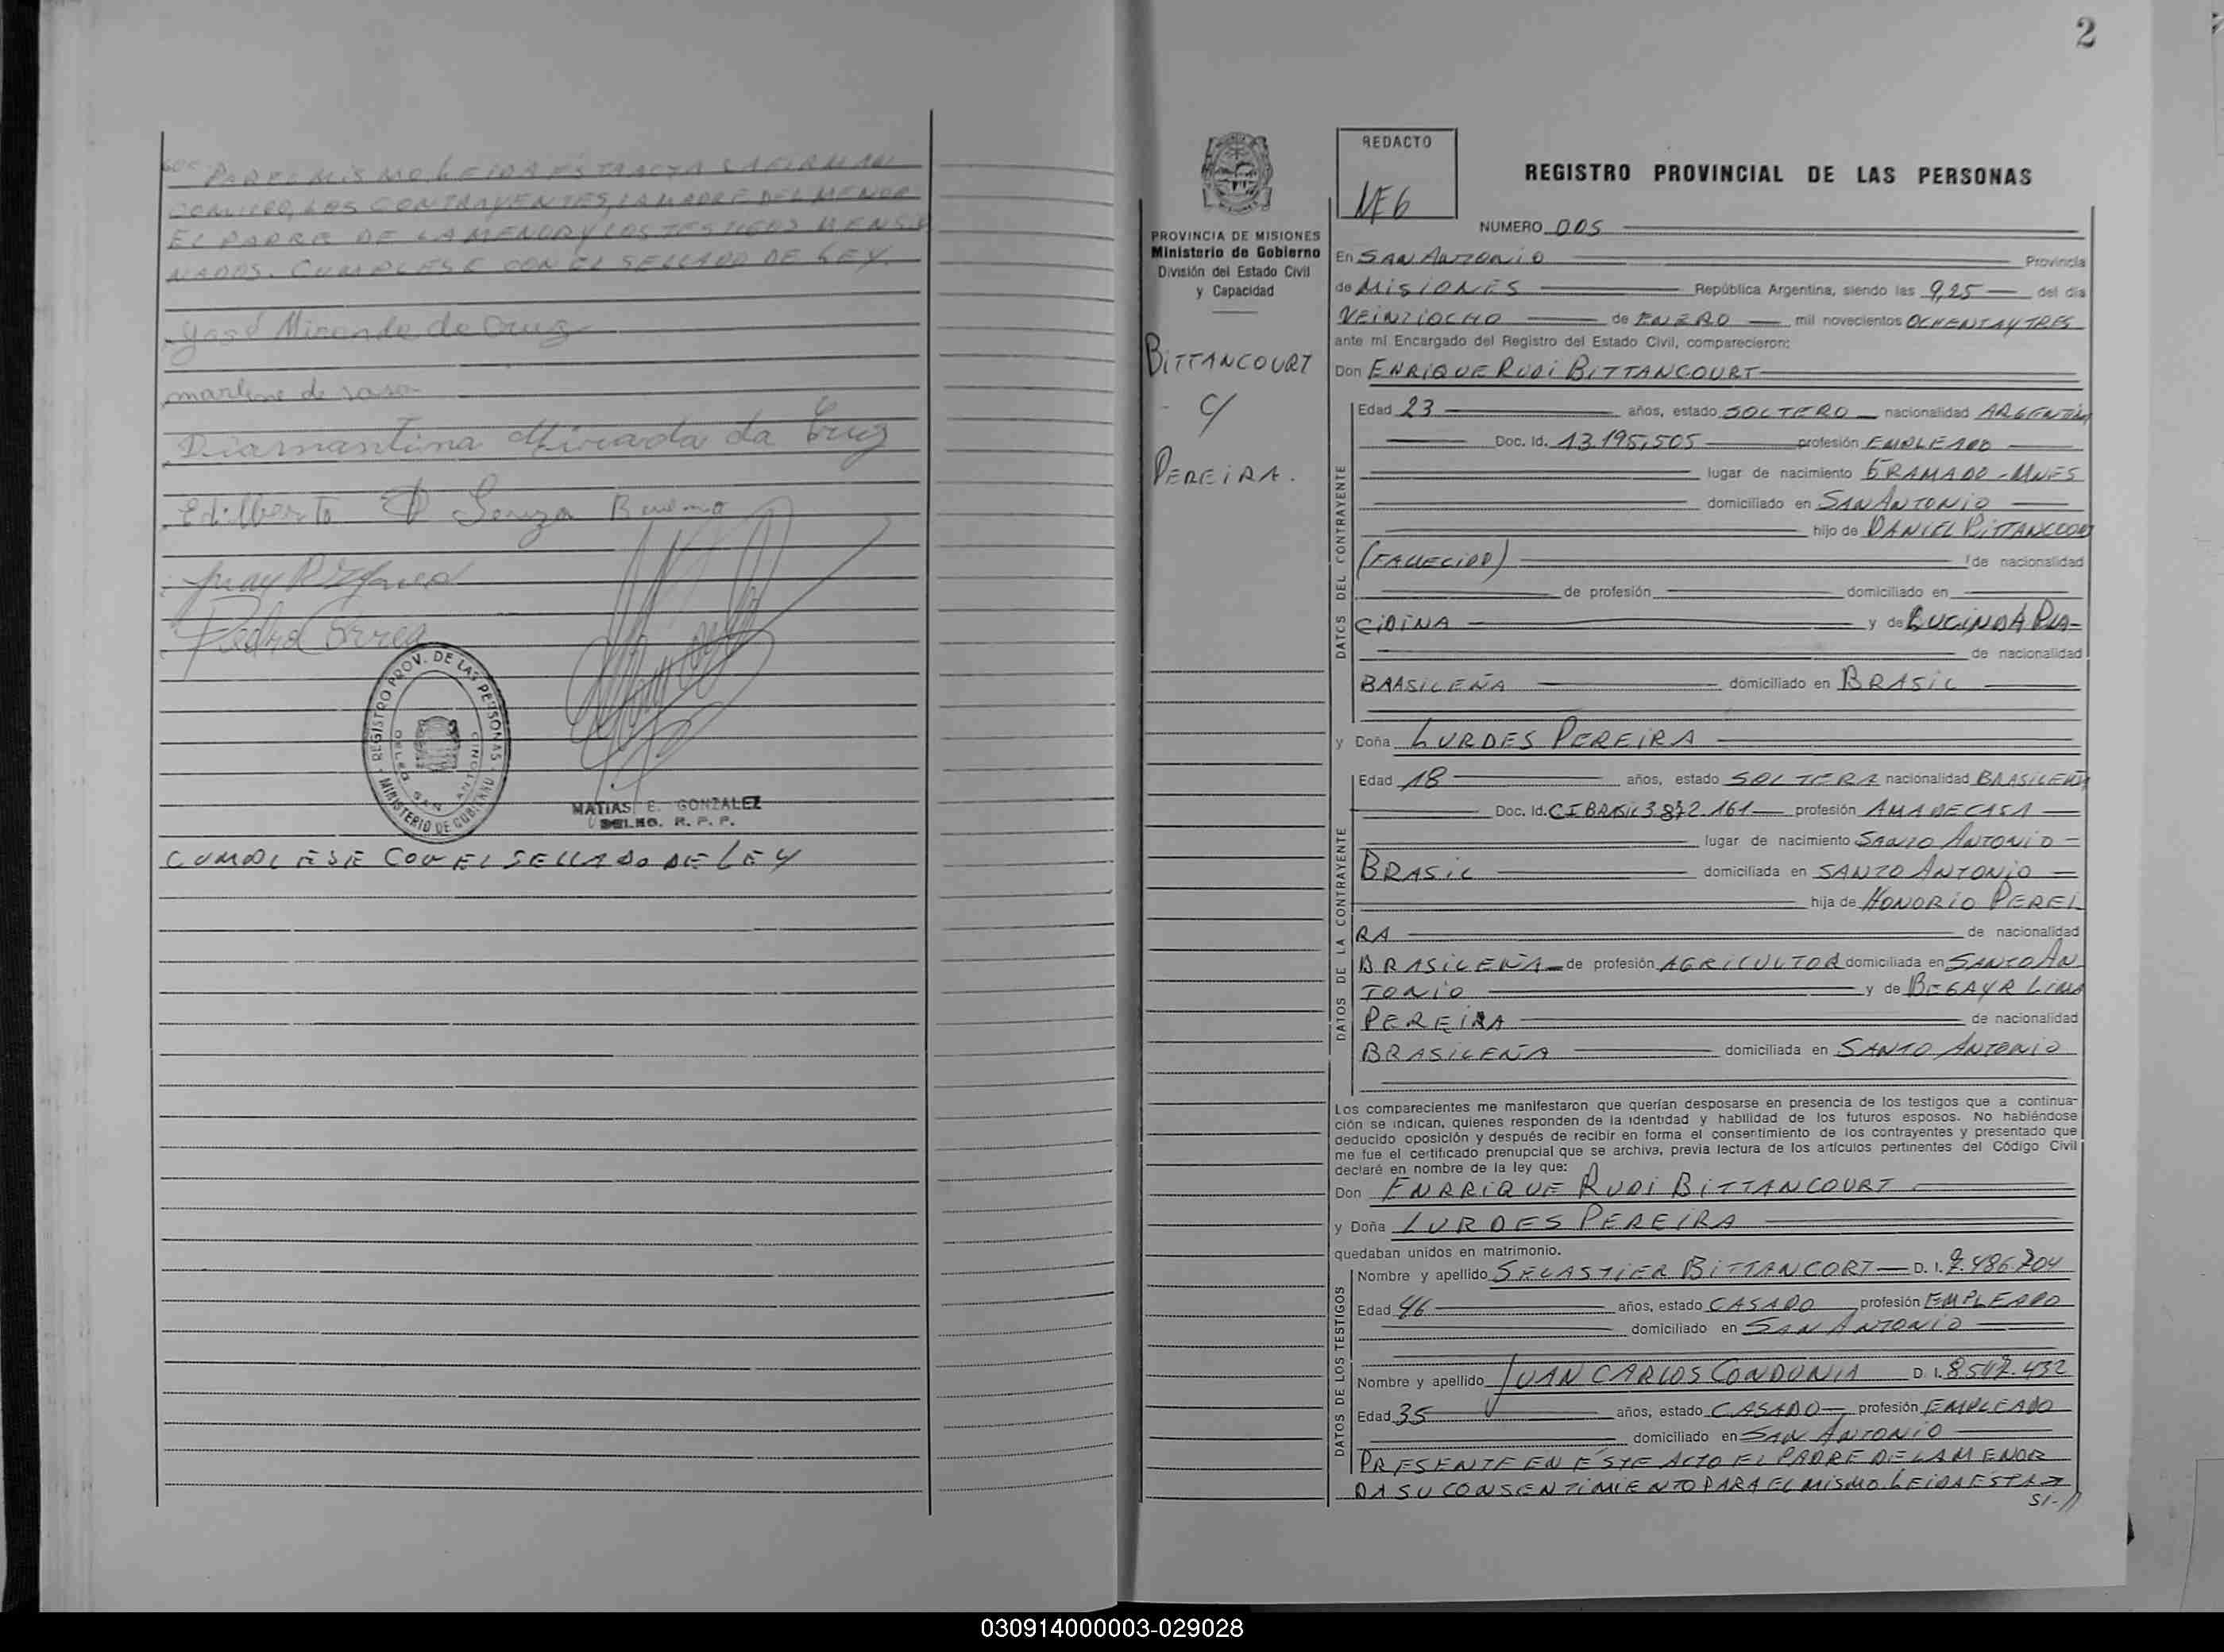 PARA EL MISMO. LEIDA ESTA ACTA LA FIRMAN
CONMIGO, LOS CONTRAYENTES, LA MADRE DEL MENOR
EL PADRE DE LA MENOR Y LOS TESTIGOS MENSIO
NADOS. CUMPLESE CON EL SELLADO DE LEY.
José Miranda da Cruz
marlene de
Diamantina Mirada da Cruz
Edilberto D Souza Bueno
Pedro Correa
REGISTRO PROV. DE LAS PERSONAS
MINISTERIO DE GOBIERNO
MATIAS E. GONZALEZ
R. P. P.
CUMPLESE CON EL SELLADO DE LEY
2
PROVINCIA DE MISIONES
Ministerio de Gobierno
División del Estado Civil
y Capacidad
BITTANCOURT
C/
PEREIRA.
REDACTO
REGISTRO PROVINCIAL DE LAS PERSONAS
NUMERO 005
En SAN ANTONIO Provincia
de MISIONES República Argentina, siendo las 9,25 del día
VEINTIOCHO de ENERO mil novecientos OCHENTA Y TRES
ante mí Encargado del Registro del Estado Civil, comparecieron:
Don ENRIQUE RUDI BITTANCOURT
DATOS DEL CONTRAYENTE
Edad 23 años, estado SOLTERO nacionalidad ARGENTINA
Doc. Id. 13.195,505 profesión EMPLEADO
lugar de nacimiento GRAMADO - MNES
domiciliado en SAN ANTONIO
hijo de DANIEL BITTANCOURT
(FALLECIDO) de nacionalidad
de profesión domiciliado en
CIDINA y de LUCINDA PLA-
de nacionalidad
BRASILEÑA domiciliado en BRASIL
y Doña LURDES PEREIRA
DATOS DE LA CONTRAYENTE
Edad 18 años, estado SOLTERA nacionalidad BRASILEÑA
Doc. Id. CI BRASIL 3.872.161 profesión AMA DE CASA
lugar de nacimiento SANTO ANTONIO
BRASIL domiciliada en SANTO ANTONIO
hija de HONORIO PEREI
RA de nacionalidad
BRASILEÑA de profesión AGRICULTOR domiciliada en SANTO AN
TONIO y de BEGAYR LIMA
PEREIRA de nacionalidad
BRASILEÑA domiciliada en SANTO ANTONIO
Los comparecientes me manifestaron que querían desposarse en presencia de los testigos que a continua-
ción se indican, quienes responden de la identidad y habilidad de los futuros esposos. No habiéndose
deducido oposición y después de recibir en forma el consentimiento de los contrayentes y presentado que
me fue el certificado prenupcial que se archiva, previa lectura de los artículos pertinentes del Código Civil
declaré en nombre de la ley que:
Don ENRRIQUE RUDI BITTANCOURT
y Doña LURDES PEREIRA
quedaban unidos en matrimonio.
DATOS DE LOS TESTIGOS
Nombre y apellido SELASTIER BITTANCORT D. I. 7.486.704
Edad 46 años, estado CASADO profesión EMPLEADO
domiciliado en SAN ANTONIO
Nombre y apellido JUAN CARLOS CONDUNIA D. I. 8547.432
Edad 35 años, estado CASADO profesión EMPLEADO
domiciliado en SAN ANTONIO
PRESENTE EN ÉSTE ACTO EL PADRE DE LA MENOR
DA SU CONSENTIMIENTO PARA EL MISMO. LEIDA ESTA
SI-//
030914000003-029028